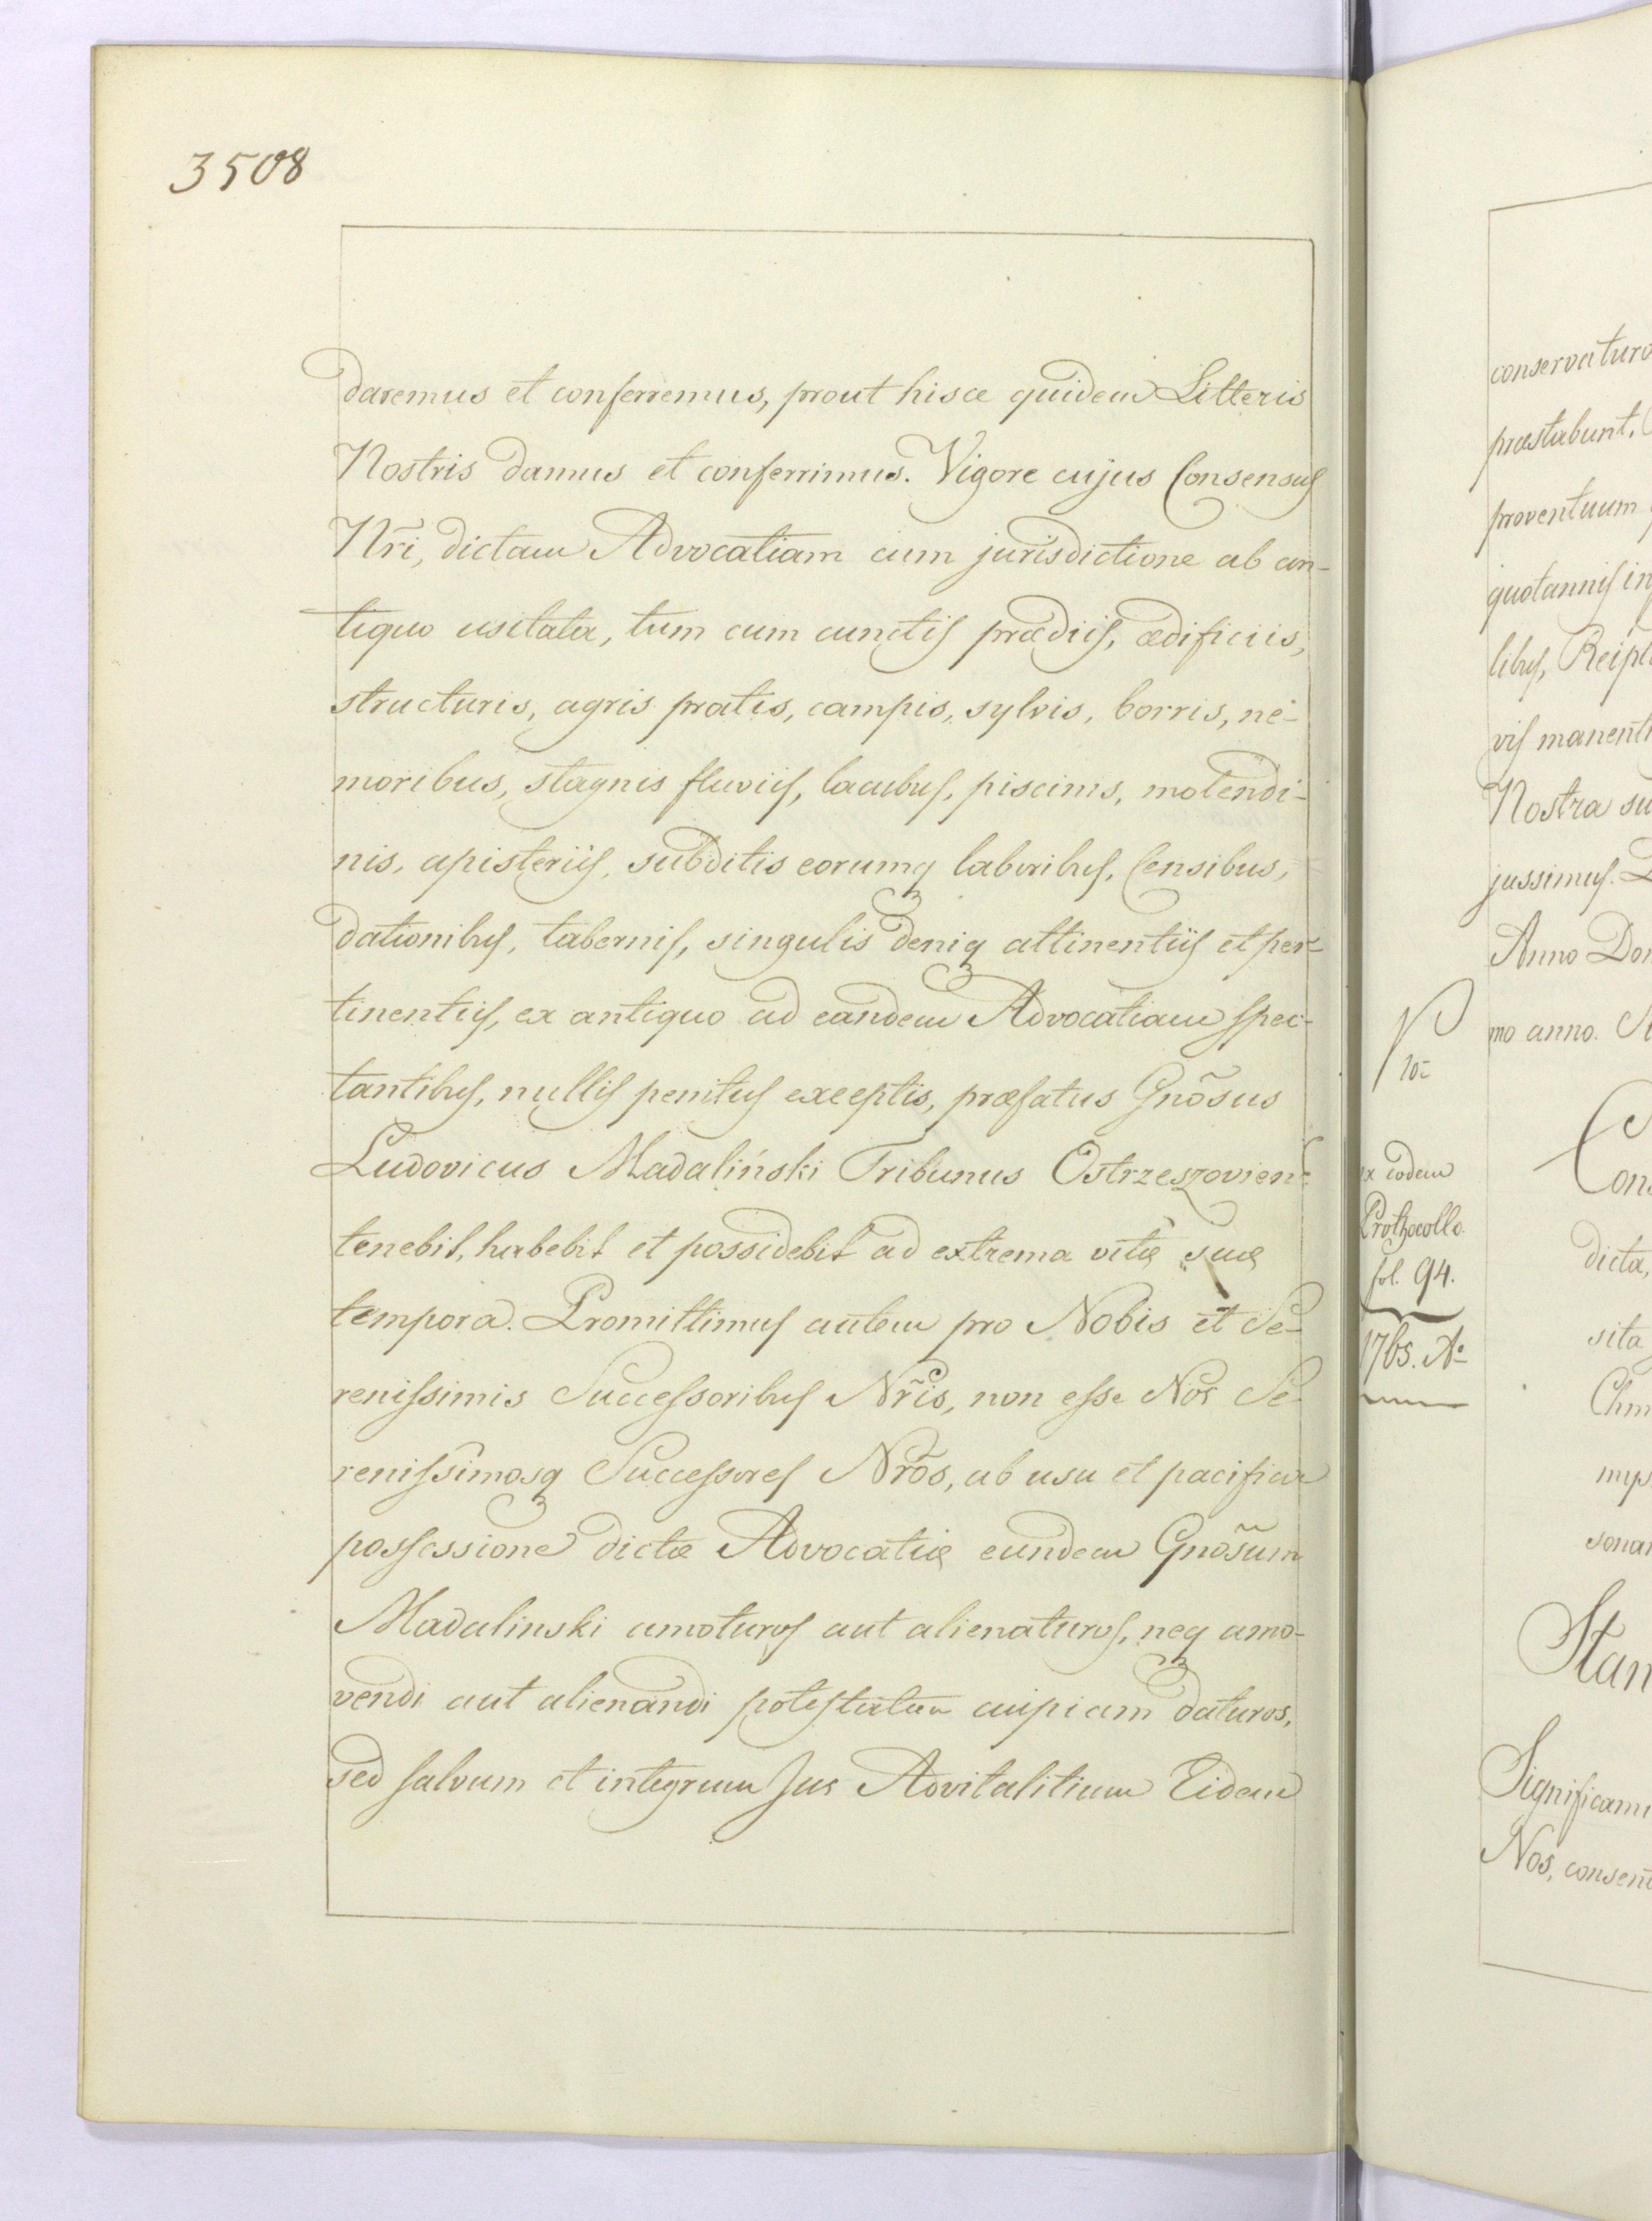 3508
daremus et conferremus, prout hisce quidem Litteris
Nostris damus et conferrimus. Vigore cujus Consensus
Nr̃i, dictam Advocatiam cum jurisdictione ab an-
tiquo usitata, tum cum cunctis prædiis, ædificiis,
structuris, agris pratis, campis, sylvis, borris, ne-
moribus, stagnis fluviis, lacubus, piscinis, molendi-
nis, apisteriis, subditis eorumq laboribus, Censibus,
dationibus, tabernis, singulis deniq attinentiis et per-
tinentiis, ex antiquo ad eandem Advocatiam spec-
tantibus, nullis penitus exceptis, præfatus Gnõsus
Ludovicus Madaliński Tribunus Ostrzeszovien:
tenebit, habebit et possidebit ad extrema vitæ suæ
tempora. Promittimus autem pro Nobis et Se-
renissimis Successoribus Nr̃is, non esse Nos Se-
renissimosq Successores Nr̃os, ab usu et pacifica
possessione dictæ Advocatiæ eundem Gnõsum
Madalinski amoturos aut alienaturos, neq amo-
vendi aut alienandi potestatem cuipiam daturos,
sed salvum et integrum Jus Advitalitium Eidem
conservaturo
præstabunt.
proventuum
quotannis in
libus, Reipu
vis manenti
Nostra su
jussimus. D
Anno Dom
mo anno. St
ex eodem
Prothocollo
fol. 94.
1765. Aº
Con
dicta,
sita
Chm
mys
sonar
Stan
Significam
Nos, consen